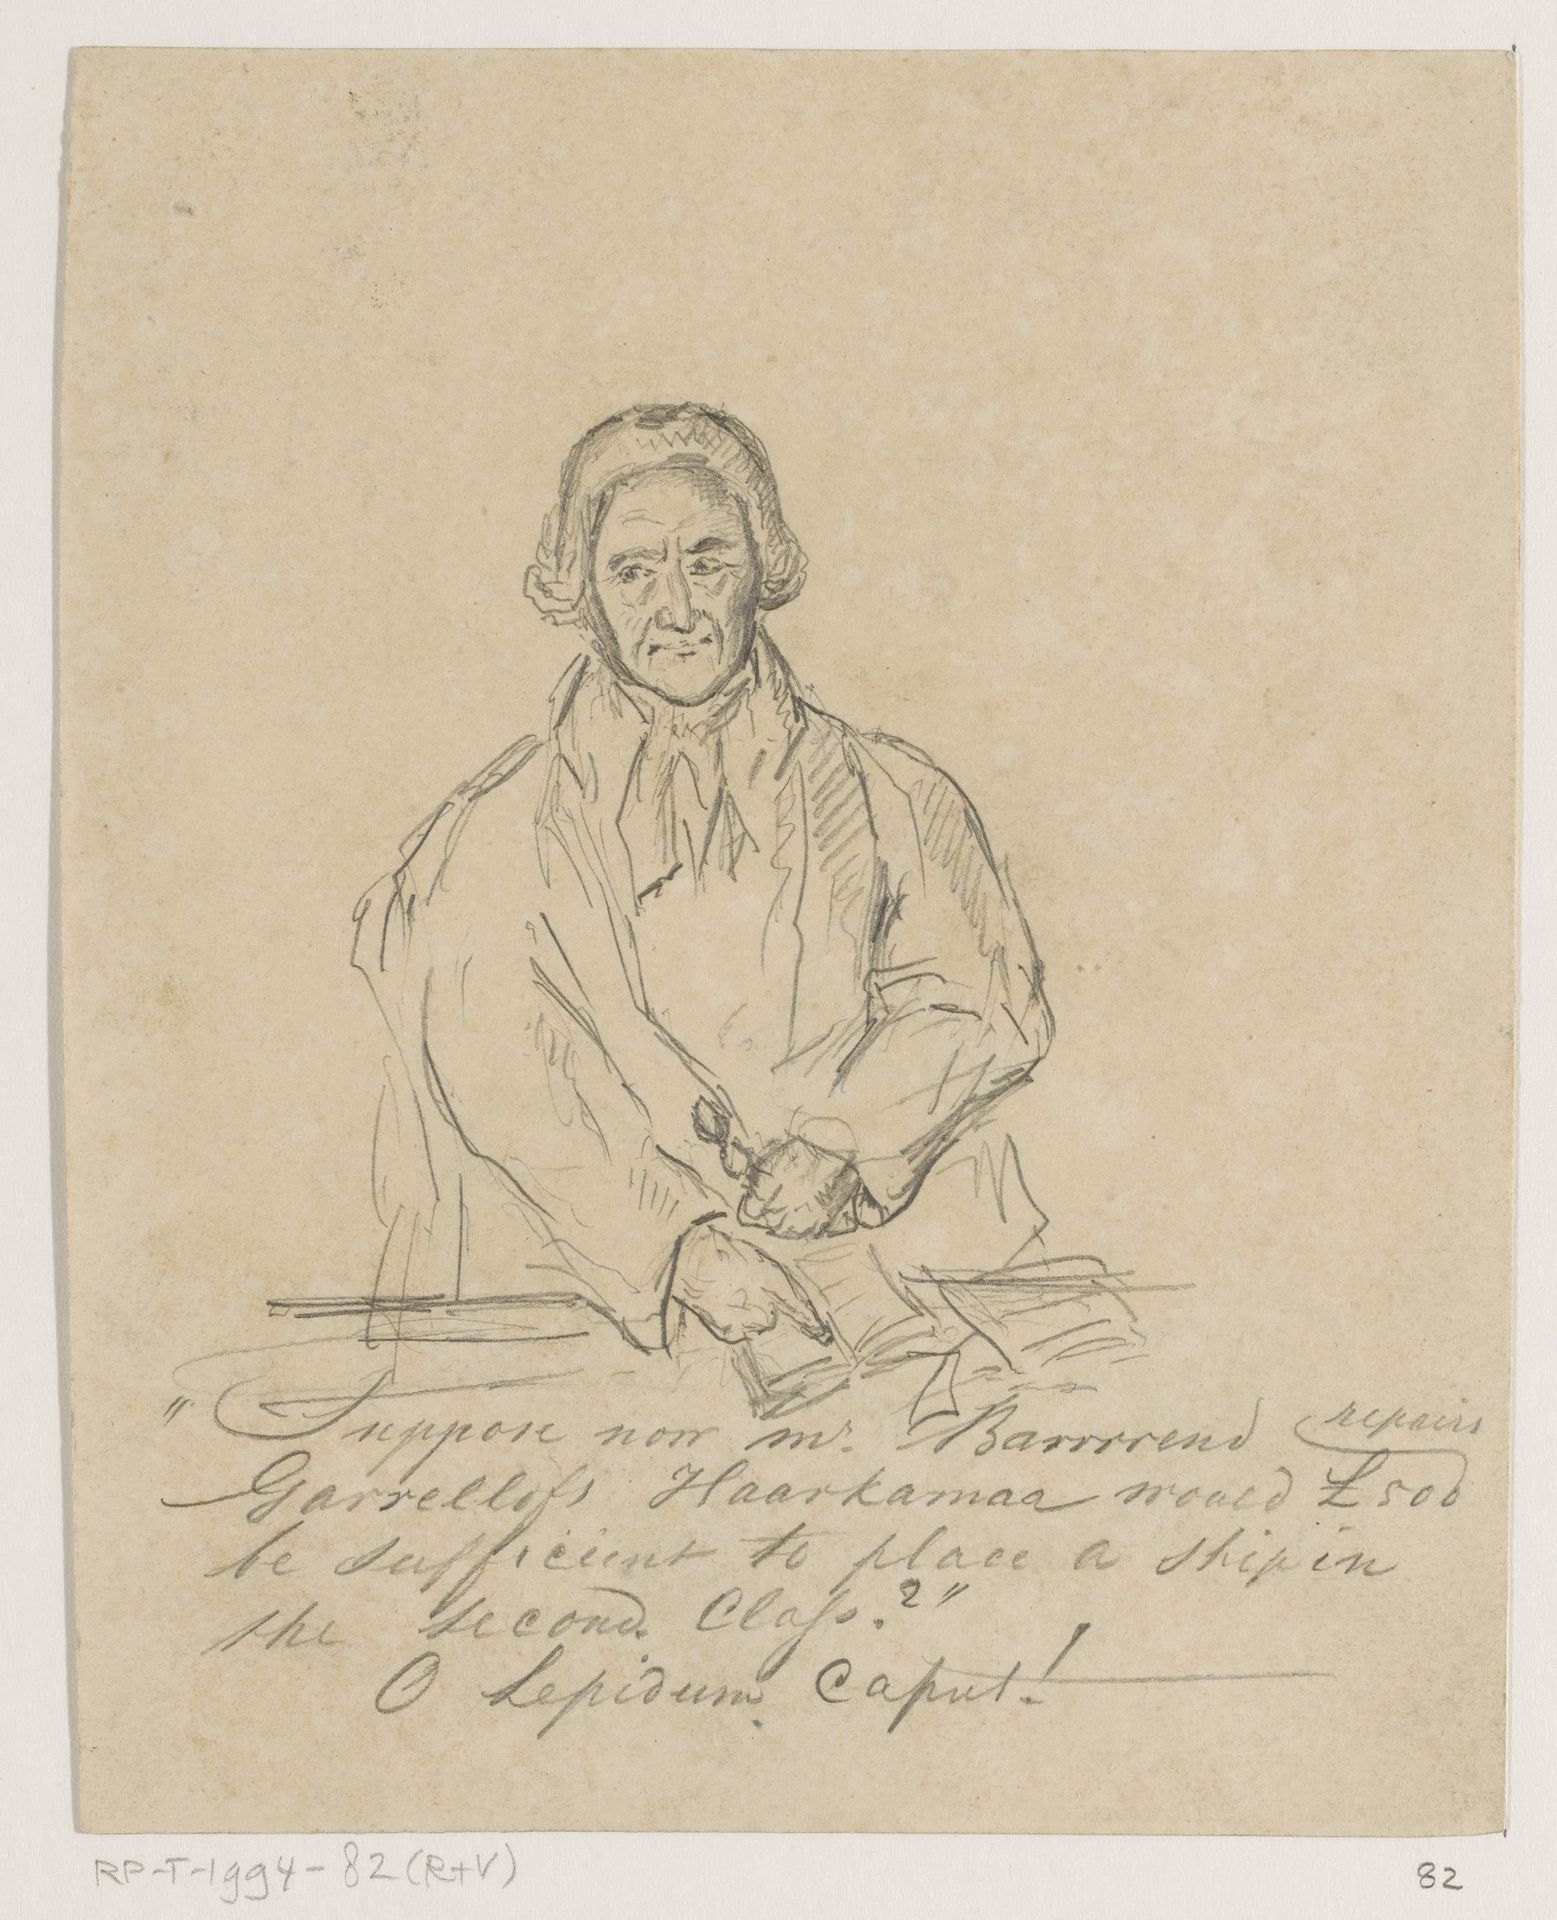 "Suppose now mr. Barrrrend repairs
Garrellofs Haarkamaa would £500
be sufficient to place a ship in
the second. Class.?"
O Lepidum Caput!
RP-T-1994-82(R+V)
82